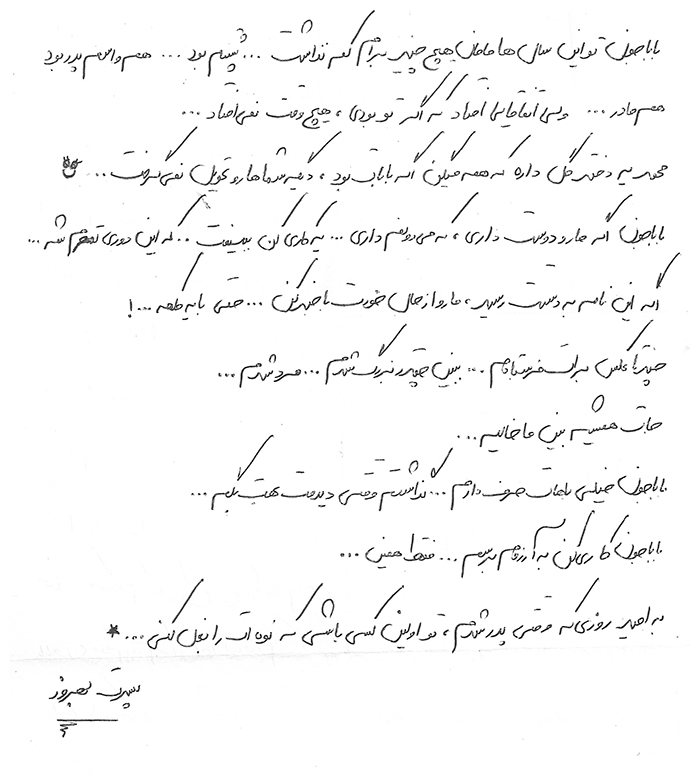 باباجون تو این سال ها مامان هیچ چیز برام کم نذاشت ... پشتم بود ... هم واسم پدر بود
هم مادر ... ولی اتفاقایی افتاد که اگر تو بودی ، هیچ وقت نمی افتاد ...
محمد یه دختر گل داره که همه میگن اگه بابات بود ، دیگه شماها رو تحویل نمی گرفت ..
باباجون اگه مارو دوست داری ، که می دونم داری ... یه کاری کن ببینمت .. که این دوری تموم شه ...
اگه این نامه به دستت رسید ، مارو از حال خودت باخبر کن ... حتی با یه کلمه ... !
چندتا عکس برات فرستادم ... ببین چقدر بزرگ شدم ... مرد شدم ...
جات همیشه بین ما خالیه ...
باباجون خیلی باهات حرف دارم ... گذاشتم وقتی دیدمت بهت بگم ...
باباجون کاری کن به آرزوم برسم ... فقط همین ...
به امید روزی که وقتی پدر شدم ، تو اولین کسی باشی که نوه ات را بغل کنی ... *
پسرت بهروز